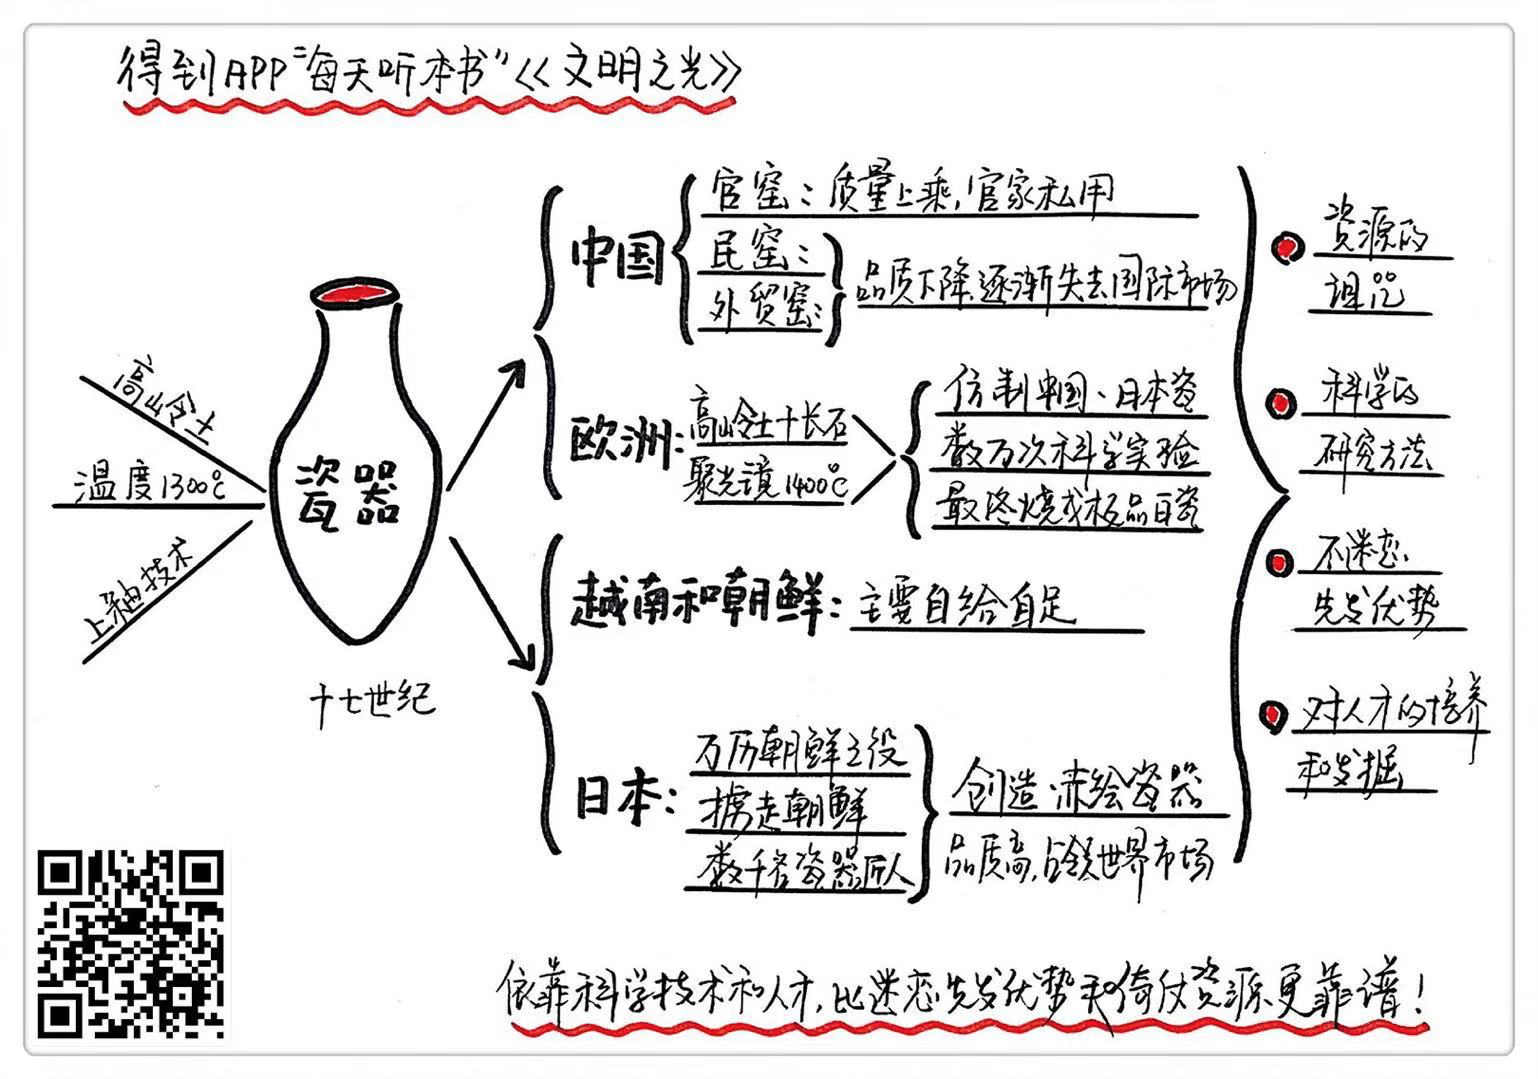 得到APP“每天听本书”《文明之光》
高岭土
温度1300℃
上釉技术
瓷器
十七世纪
中国
官窑：质量上乘，官家私用
民窑：
外贸窑：
品质下降，逐渐失去国际市场
欧洲：
高岭土+长石
聚光镜1400℃
仿制中国、日本瓷
数万次科学实验
最终烧成极品白瓷
越南和朝鲜：主要自给自足
日本：
万历朝鲜之役
掳走朝鲜
数千名瓷器匠人
创造赤绘瓷器
品质高，占领世界市场
资源的
诅咒
科学的
研究方法
不迷恋
先发优势
对人才的培养
和发掘
依靠科学技术和人才，比迷恋先发优势和倚仗资源更靠谱！